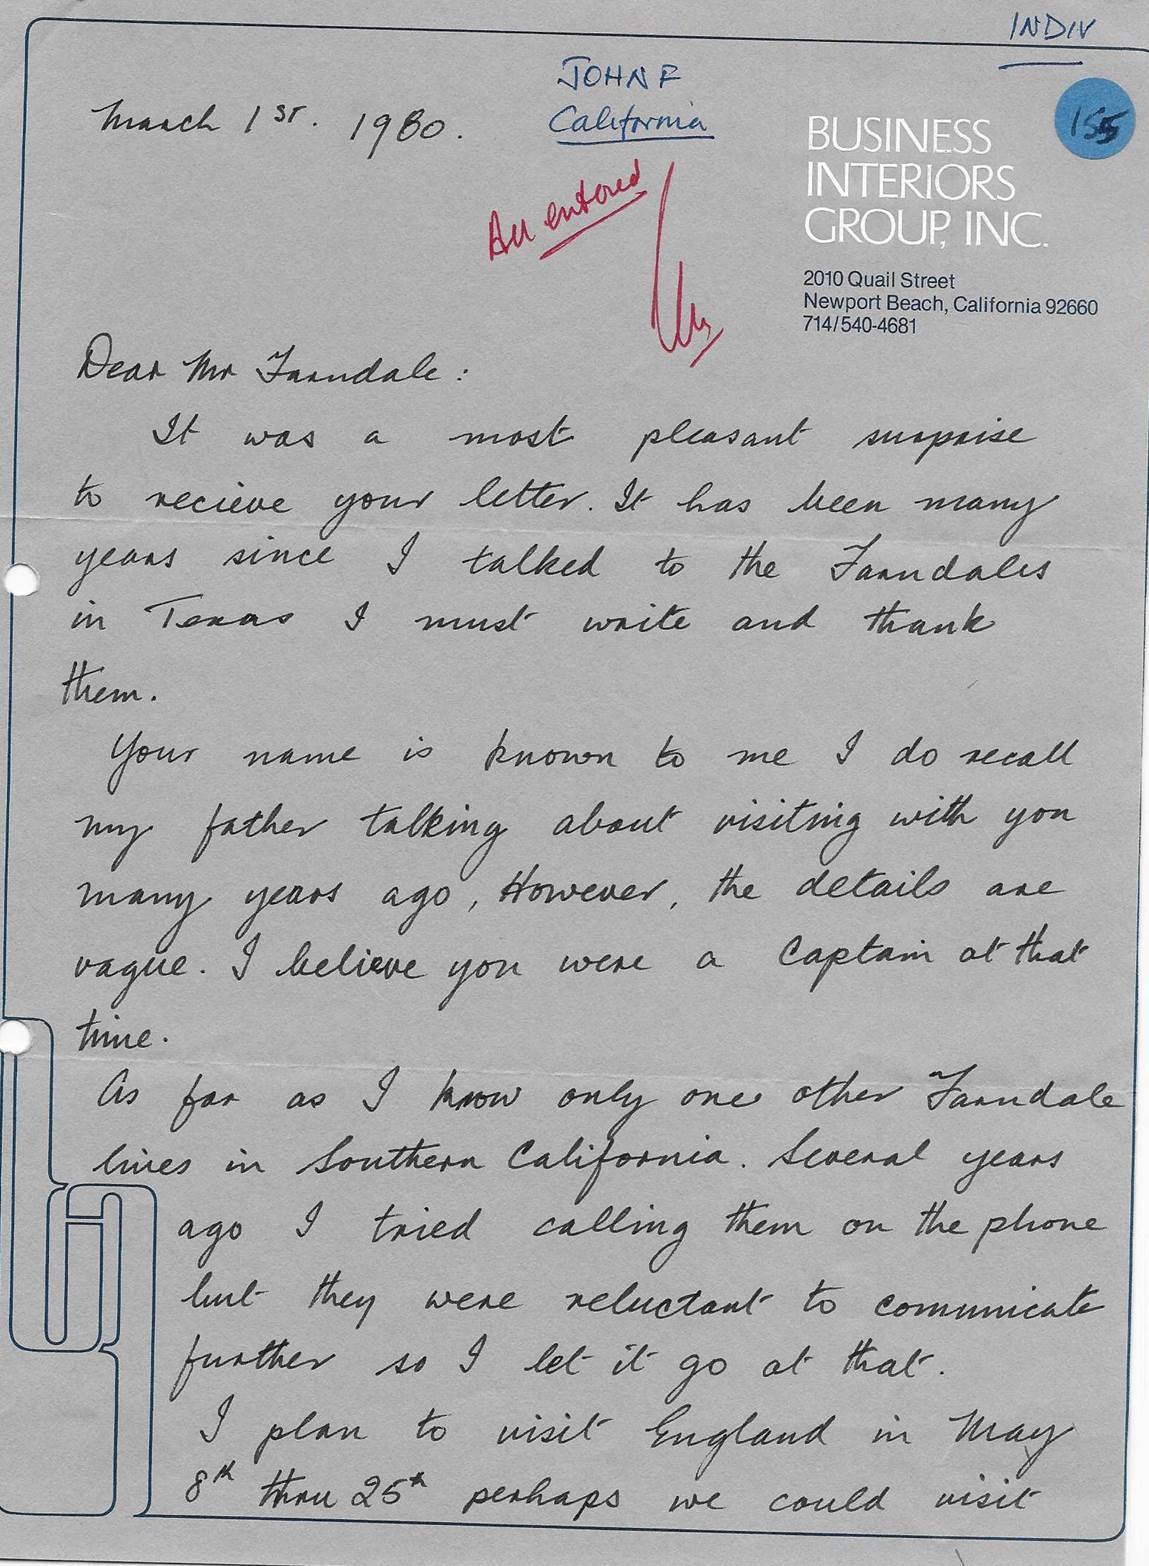 INDIV
JOHN F
California
155
March 1ST. 1980.
All entered
BUSINESS
INTERIORS
GROUP, INC.
2010 Quail Street
Newport Beach, California 92660
714/540-4681
Dear Mr Farndale:
It was a most pleasant surprise
to recieve your letter. It has been many
years since I talked to the Farndales
in Texas I must write and thank
them.
Your name is known to me I do recall
my father talking about visiting with you
many years ago, However, the details are
vague. I believe you were a Captain at that
time.
As far as I know only one other Farndale
lives in Southern California. Several years
ago I tried calling them on the phone
but they were reluctant to communicate
further so I let it go at that.
I plan to visit England in May
8th thru 25th perhaps we could visit